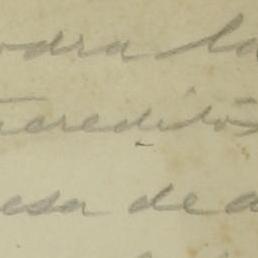 odra la
acreditó
esa de a